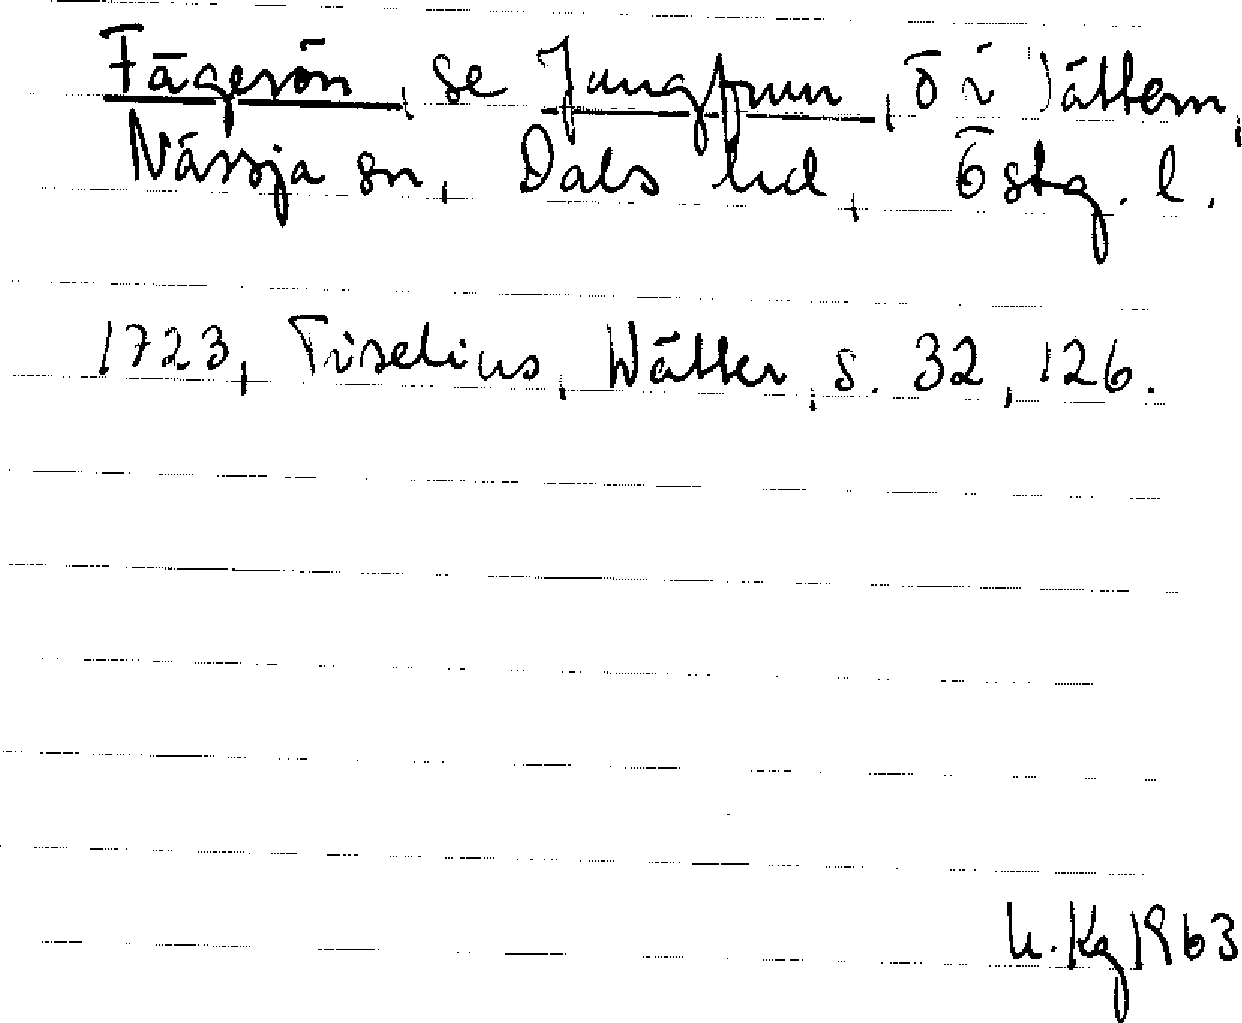 Fågerön, se Jungfrun, ö i Vättern,
Nässja sn, Dals hd, Östg. l.
1723, Tiselius, Wätter, s. 32, 126.
K. Kg 1963